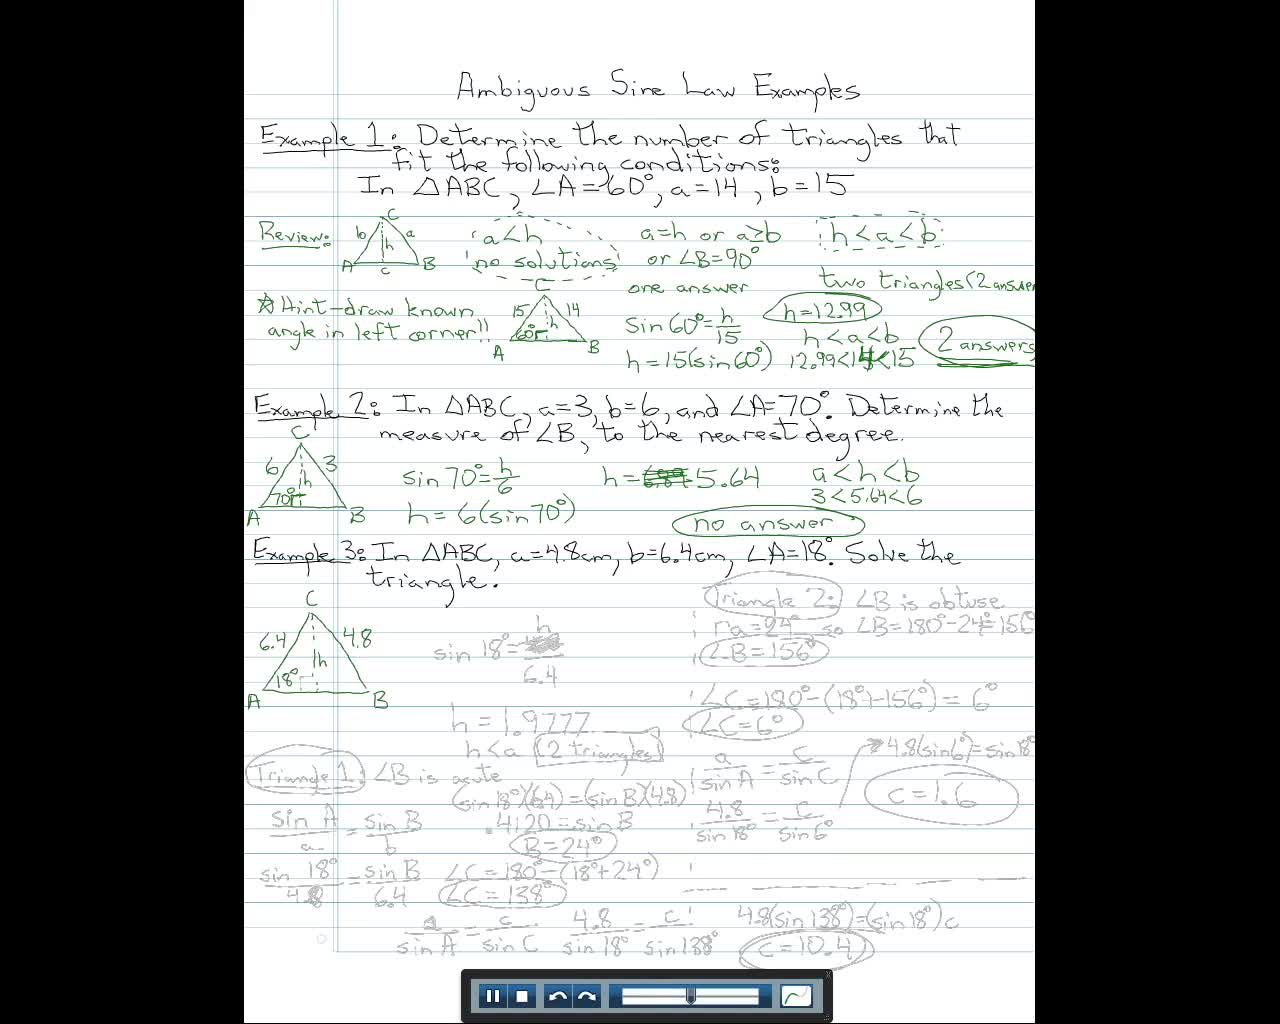 Ambiguous Sine Law Examples
Example 1: Determine the number of triangles that
fit the following conditions:
In △ABC, ∠A=60°, a=14, b=15
Review:
C
b
a
h
A
c
B
a<h
no solutions
a=h or a≥b
or ∠B=90°
one answer
h<a<b
two triangles (2 answer
☆Hint-draw known
angle in left corner!!
C
15
14
60°
h
A
B
sin60°=h/15
h=15(sin60°)
h=12.99
h<a<b
12.99<14<15
2 answers
Example 2: In △ABC, a=3, b=6, and ∠A=70°. Determine the
measure of ∠B, to the nearest degree.
C
6
3
h
70°
A
B
sin70°=h/6
h=6(sin70°)
h=5.64
a<h<b
3<5.64<6
no answer
Example 3: In △ABC, a=4.8cm, b=6.4cm, ∠A=18°. Solve the
triangle.
C
6.4
4.8
h
18°
A
B
sin 18°=h/6.4
h=1.9777
h<a 2 triangles
Triangle 1: ∠B is acute
sin A/a=sin B/b
sin 18°/4.8=sin B/6.4
(sin18°)(6.4)=(sin B)(4.8)
.4120=sinB
B=24°
∠C=180°-(18°+24°)
∠C=138°
a/sin A=c/sin C
4.8/sin 18°=c/sin 138°
4.8(sin 138°)=(sin 18°)c
c=10.4
Triangle 2: ∠B is obtuse
ra=24° so ∠B=180°-24°=156°
∠B=156°
∠C=180°-(18°+156°)=6°
∠C=6°
a/sin A=c/sin C
4.8/sin18°=c/sin6°
4.8(sin6°)=sin18°
c=1.6